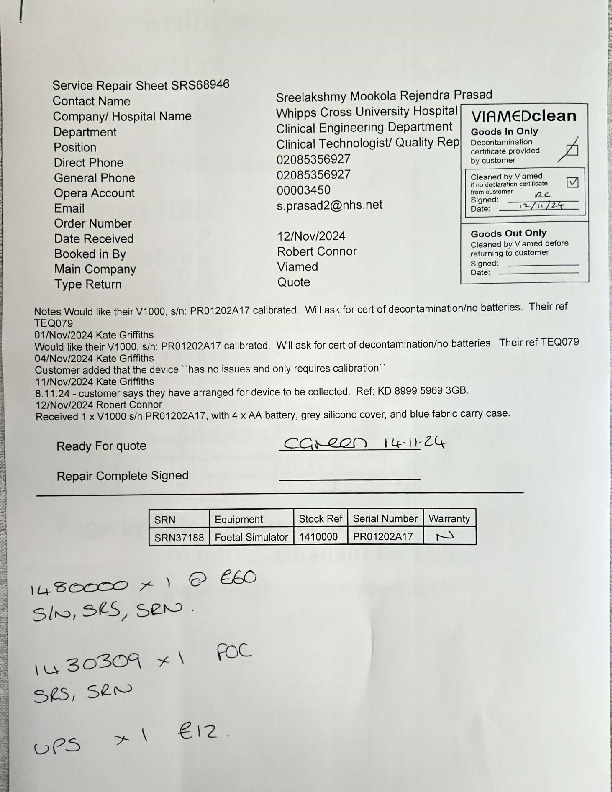 Service Repair Sheet SRS68946
Contact Name Sreelakshmy Mookola Rejendra Prasad
Company/ Hospital Name Whipps Cross University Hospital
Department Clinical Engineering Department
Position Clinical Technologist/ Quality Rep
Direct Phone 02085356927
General Phone 02085356927
Opera Account 00003450
Email s.prasad2@nhs.net
Order Number
Date Received 12/Nov/2024
Booked in By Robert Connor
Main Company Viamed
Type Return Quote
VIAMEDclean
Goods In Only
Decontamination
certificate provided
by customer
Cleaned by Viamed
if no declaration certificate
from customer
Signed: RC
Date: 12/11/24
Goods Out Only
Cleaned by Viamed before
returning to customer
Signed:
Date:
Notes Would like their V1000, s/n: PR01202A17 calibrated. Will ask for cert of decontamination/no batteries. Their ref
TEQ079
01/Nov/2024 Kate Griffiths
Would like their V1000, s/n: PR01202A17 calibrated. Will ask for cert of decontamination/no batteries. Their ref TEQ079
04/Nov/2024 Kate Griffiths
Customer added that the device ``has no issues and only requires calibration``
11/Nov/2024 Kate Griffiths
8.11.24 - customer says they have arranged for device to be collected. Ref: KD 8999 5969 3GB.
12/Nov/2024 Robert Connor
Received 1 x V1000 s/n PR01202A17, with 4 x AA battery, grey silicone cover, and blue fabric carry case.
Ready For quote CGreen 14-11-24
Repair Complete Signed
SRN Equipment Stock Ref Serial Number Warranty
SRN37188 Foetal Simulator 1410000 PR01202A17 N
1480000 x 1 @ £60
S/N, SRS, SRN.
1430309 x 1 FOC
SRS, SRN
UPS x 1 £12.